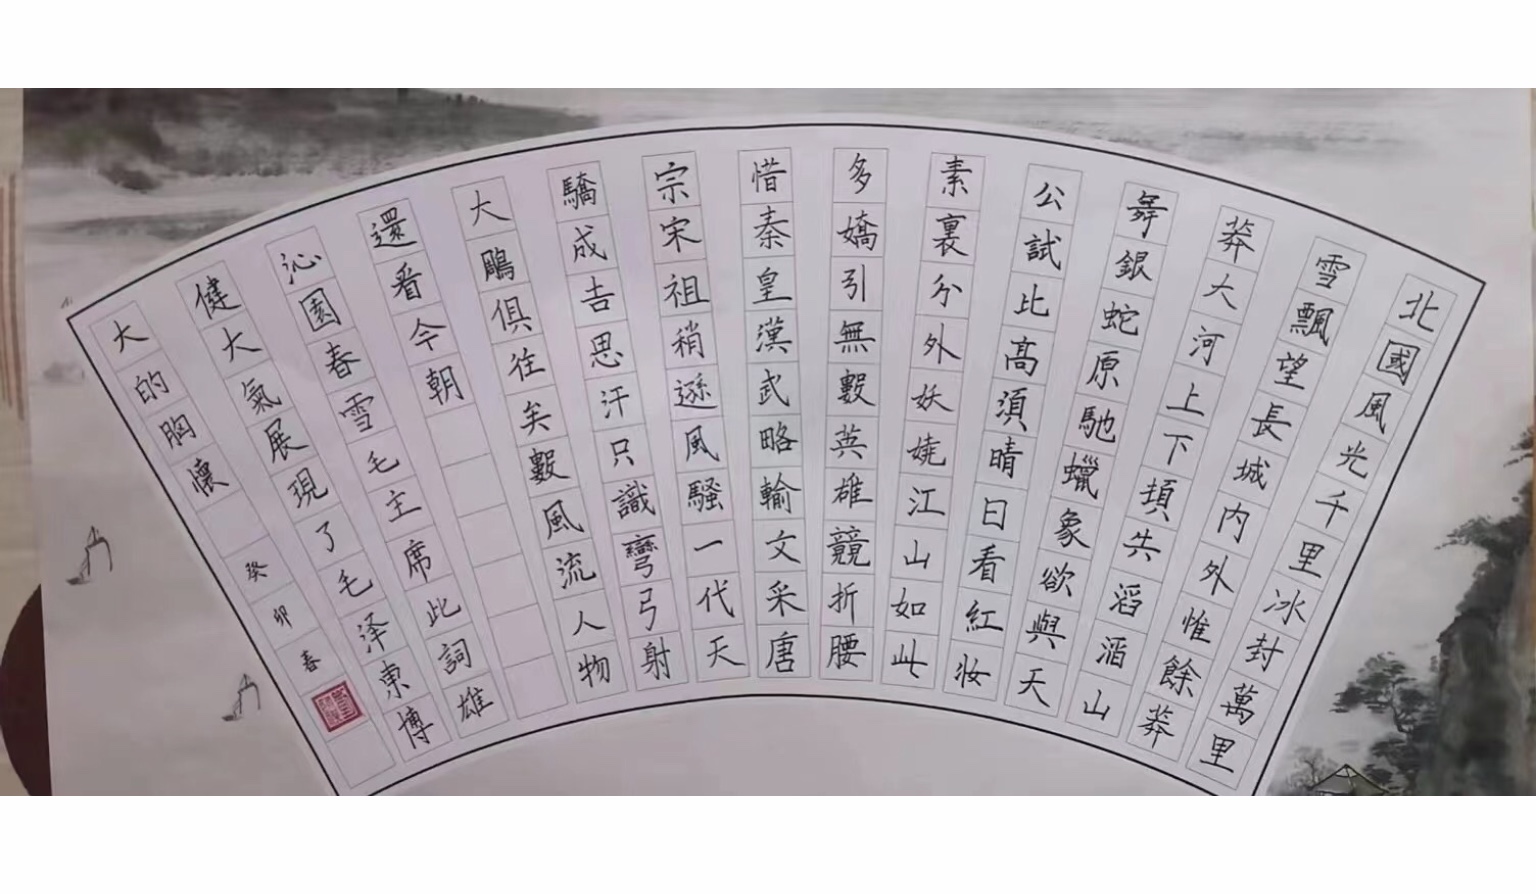 北國風光千里冰封萬里
雪飄望長城内外惟餘莽
莽大河上下頓失滔滔山
舞銀蛇原馳蠟象欲與天
公試比高須晴日看紅妝
素裏分外妖嬈江山如此
多嬌引無數英雄競折腰
惜秦皇漢武略輸文采唐
宗宋祖稍遜風騷一代天
驕成吉思汗只識彎弓射
大鵰俱往矣數風流人物
還看今朝
沁園春雪毛主席此詞雄
健大氣展現了毛泽東博
大的胸懷 癸卯春